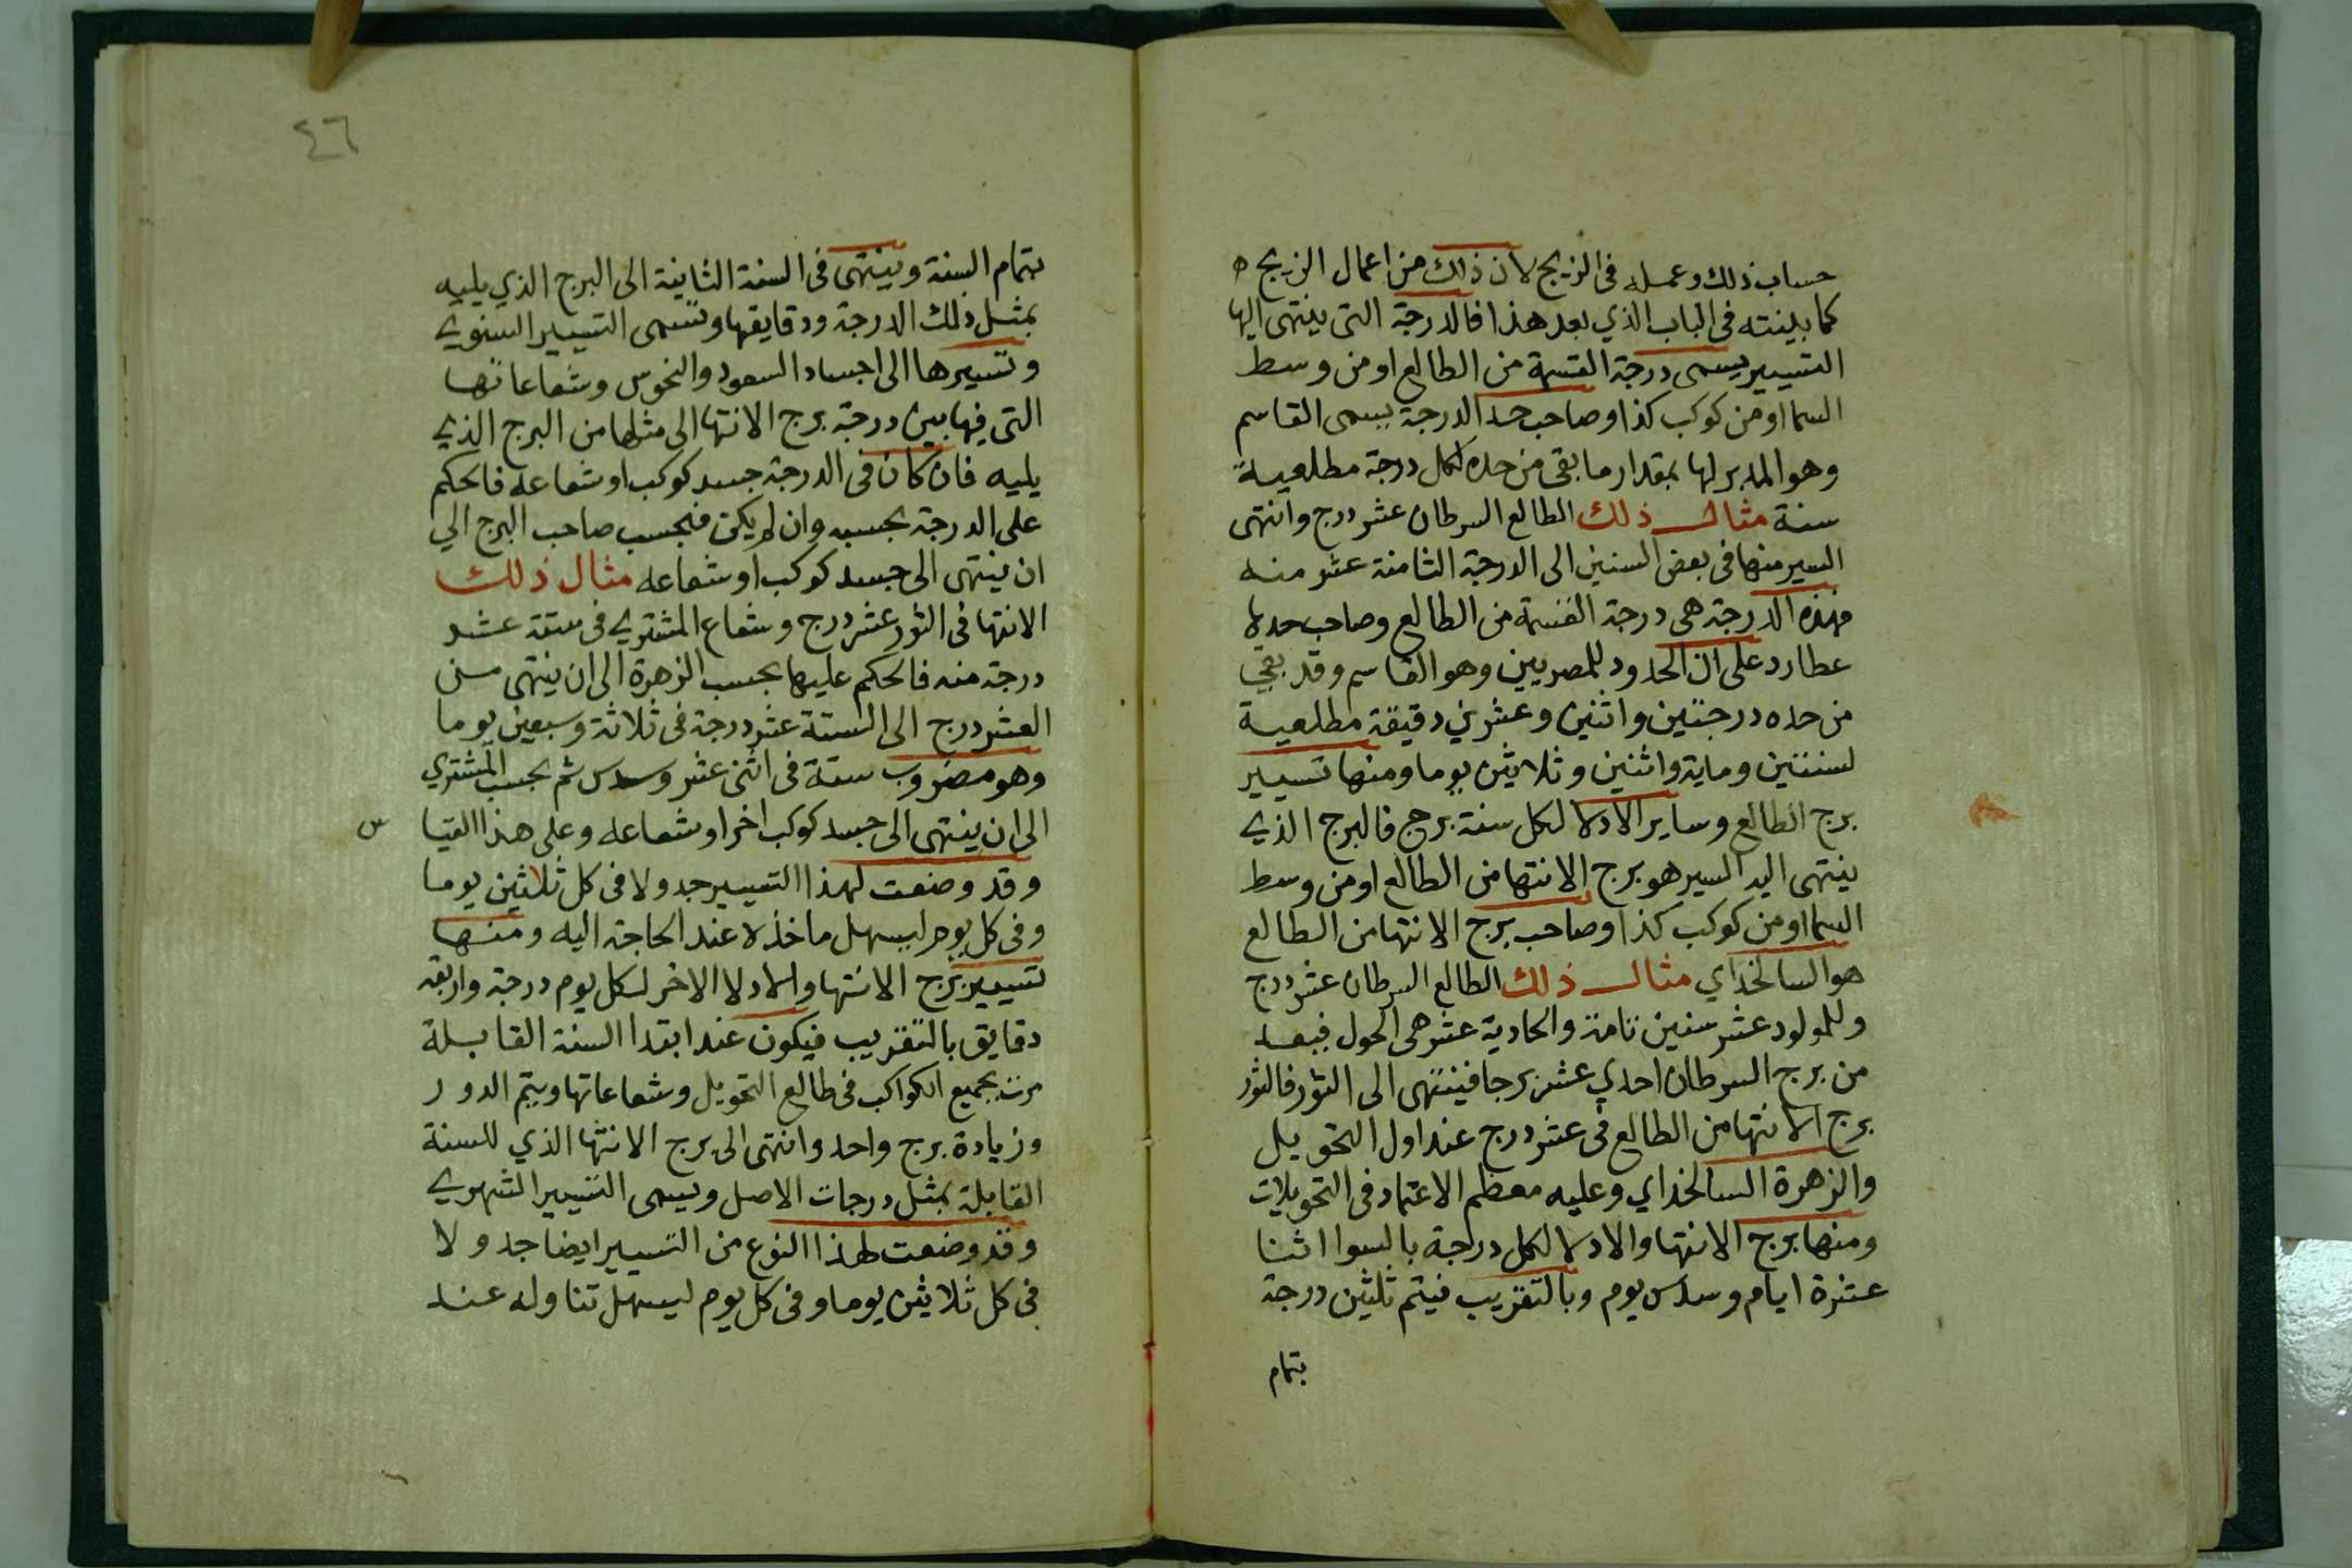 حساب ذلك وعمله فى الزيج لان ذلك من اعمال الزيج ه
كما بينته فى الباب الذي بعد هذا فالدرجة التى ينتهى اليها
التسيير يسمى درجة القسمة من الطالع او من وسط
السما او من كوكب كذا وصاحب حد الدرجة يسمى القاسم
وهو المدبر لها بمقدار ما بقى من حده لكل درجة مطلعية
سنة مثال ذلك الطالع السرطان عشر درج وانتهى
السير منها فى بعض السنين الى الدرجة الثامنة عشر منه
فهذه الدرجة هى درجة القسمة من الطالع وصاحب حدها
عطارد على ان الحدود للمصريين وهو القاسم وقد بقي
من حده درجتين واثنين وعشرين دقيقة مطلعية
لسنتين وماية واثنين وثلاثين يوما ومنها تسيير
برج الطالع وساير الادلا لكل سنة برج فالبرج الذي
ينتهى اليه السير هو برج الانتها من الطالع او من وسط
السما او من كوكب كذا وصاحب برج الانتها من الطالع
هو السالخداي مثال ذلك الطالع السرطان عشر درج
وللمولود عشر سنين تامة والحادية عشر هى الحول فبعد
من برج السرطان احدي عشر برجا فينتهى الى الثور فالثور
برج الانتها من الطالع فى عشر درج عند اول التحويل
والزهرة السالخداي وعليه معظم الاعتماد فى التحويلات
ومنها برج الانتها والادلا لكل درجة بالسوا اثنا
عشرة ايام وسدس يوم وبالتقريب فيتم ثلثين درجة
بتمام
٤٦
بتمام السنة وينتهى فى السنة الثانية الى البرج الذي يليه
بمثل ذلك الدرجة ودقايقها وتسمى التسيير السنوي
وتسيرها الى اجساد السعود والنحوس وشعاعاتها
التى فيها بين درجة برج الانتها الى مثلها من البرج الذي
يليه فان كان فى الدرجة جسد كوكب او شعاعه فالحكم
على الدرجة بحسبه وان لم يكن فبحسب صاحب البرج الي
ان ينتهى الى جسد كوكب او شعاعه مثال ذلك
الانتها فى الثور عشر درج وشعاع المشتري فى ستة عشر
درجة منه فالحكم عليها بحسب الزهرة الى ان ينتهى من
العشر درج الى الستة عشر درجة فى ثلاثة وسبعين يوما
وهو مضروب ستة فى اثنى عشر وسدس ثم بحسب المشتري
الى ان ينتهى الى جسد كوكب اخر او شعاعه وعلى هذا القيا
س
وقد وضعت لهذا التسيير جدولا فى كل ثلاثين يوما
وفى كل يوم ليسهل ماخذه عند الحاجة اليه ومنها
تسيير برج الانتها والادلا الاخر لكل يوم درجة واربعة
دقايق بالتقريب فيكون عند ابتدا السنة القابلة
مرت بجميع الكواكب فى طالع التحويل وشعاعاتها ويتم الدور
وزيادة برج واحد وانتهى الى برج الانتها الذي للسنة
القابلة بمثل درجات الاصل ويسمى التسيير الشهري
وقد وضعت لهذا النوع من التسيير ايضا جدولا
فى كل ثلاثين يوما وفى كل يوم ليسهل تناوله عند